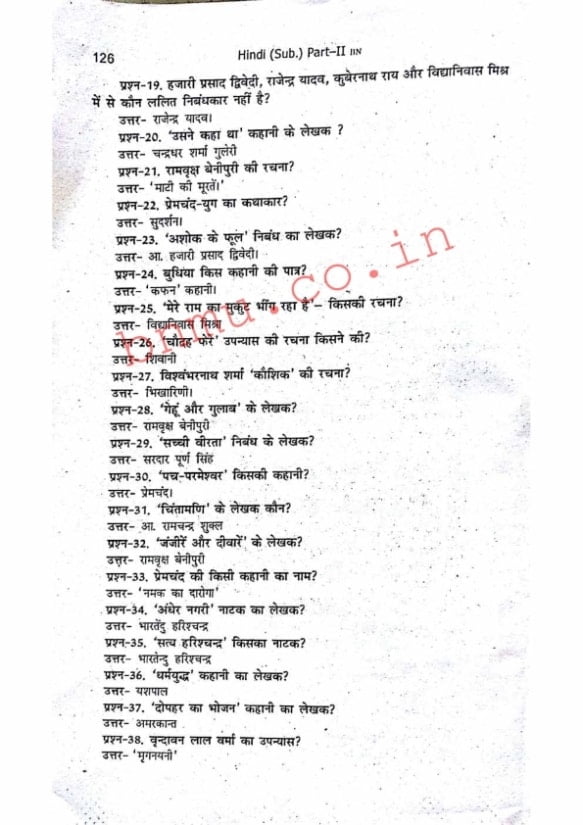 126
Hindi (Sub.) Part–II IIN
प्रश्न-19. हजारी प्रसाद द्विवेदी, राजेन्द्र यादव, कुबेरनाथ राय और विद्यानिवास मिश्र
में से कौन ललित निबंधकार नहीं है?
उत्तर- राजेन्द्र यादव।
प्रश्न-20. 'उसने कहा था' कहानी के लेखक ?
उत्तर- चन्द्रधर शर्मा गुलेरी
प्रश्न-21. रामवृक्ष बेनीपुरी की रचना?
उत्तर- 'माटी की मूरतें।'
प्रश्न-22. प्रेमचंद-युग का कथाकार?
उत्तर- सुदर्शन।
प्रश्न-23. 'अशोक के फूल' निबंध का लेखक?
उत्तर- आ. हजारी प्रसाद द्विवेदी।
प्रश्न-24. बुधिया किस कहानी की पात्र?
उत्तर- 'कफन' कहानी।
प्रश्न-25. 'मेरे राम का मुकुट भींग रहा है'– किसकी रचना?
उत्तर- विद्यानिवास मिश्रा
प्रश्न-26. 'चौदह फेरे' उपन्यास की रचना किसने की?
उत्तर- शिवानी
प्रश्न-27. विश्वंभरनाथ शर्मा 'कौशिक' की रचना?
उत्तर- भिखारिणी।
प्रश्न-28. 'गेहूं और गुलाब' के लेखक?
उत्तर- रामवृक्ष बेनीपुरी
प्रश्न-29. 'सच्ची वीरता' निबंध के लेखक?
उत्तर- सरदार पूर्ण सिंह
प्रश्न-30. 'पंच-परमेश्वर' किसकी कहानी?
उत्तर- प्रेमचंद।
प्रश्न-31. 'चिंतामणि' के लेखक कौन?
उत्तर- आ. रामचन्द्र शुक्ल
प्रश्न-32. 'जंजीरें और दीवारें' के लेखक?
उत्तर- रामवृक्ष बेनीपुरी
प्रश्न-33. प्रेमचंद की किसी कहानी का नाम?
उत्तर- 'नमक का दारोगा'
प्रश्न-34. 'अंधेर नगरी' नाटक का लेखक?
उत्तर- भारतेंदु हरिश्चन्द्र
प्रश्न-35. 'सत्य हरिश्चन्द्र' किसका नाटक?
उत्तर- भारतेन्दु हरिश्चन्द्र
प्रश्न-36. 'धर्मयुद्ध' कहानी का लेखक?
उत्तर- यशपाल
प्रश्न-37. 'दोपहर का भोजन' कहानी का लेखक?
उत्तर- अमरकान्त
प्रश्न-38. वृन्दावन लाल वर्मा का उपन्यास?
उत्तर- 'मृगनयनी'
bnmu.co.in